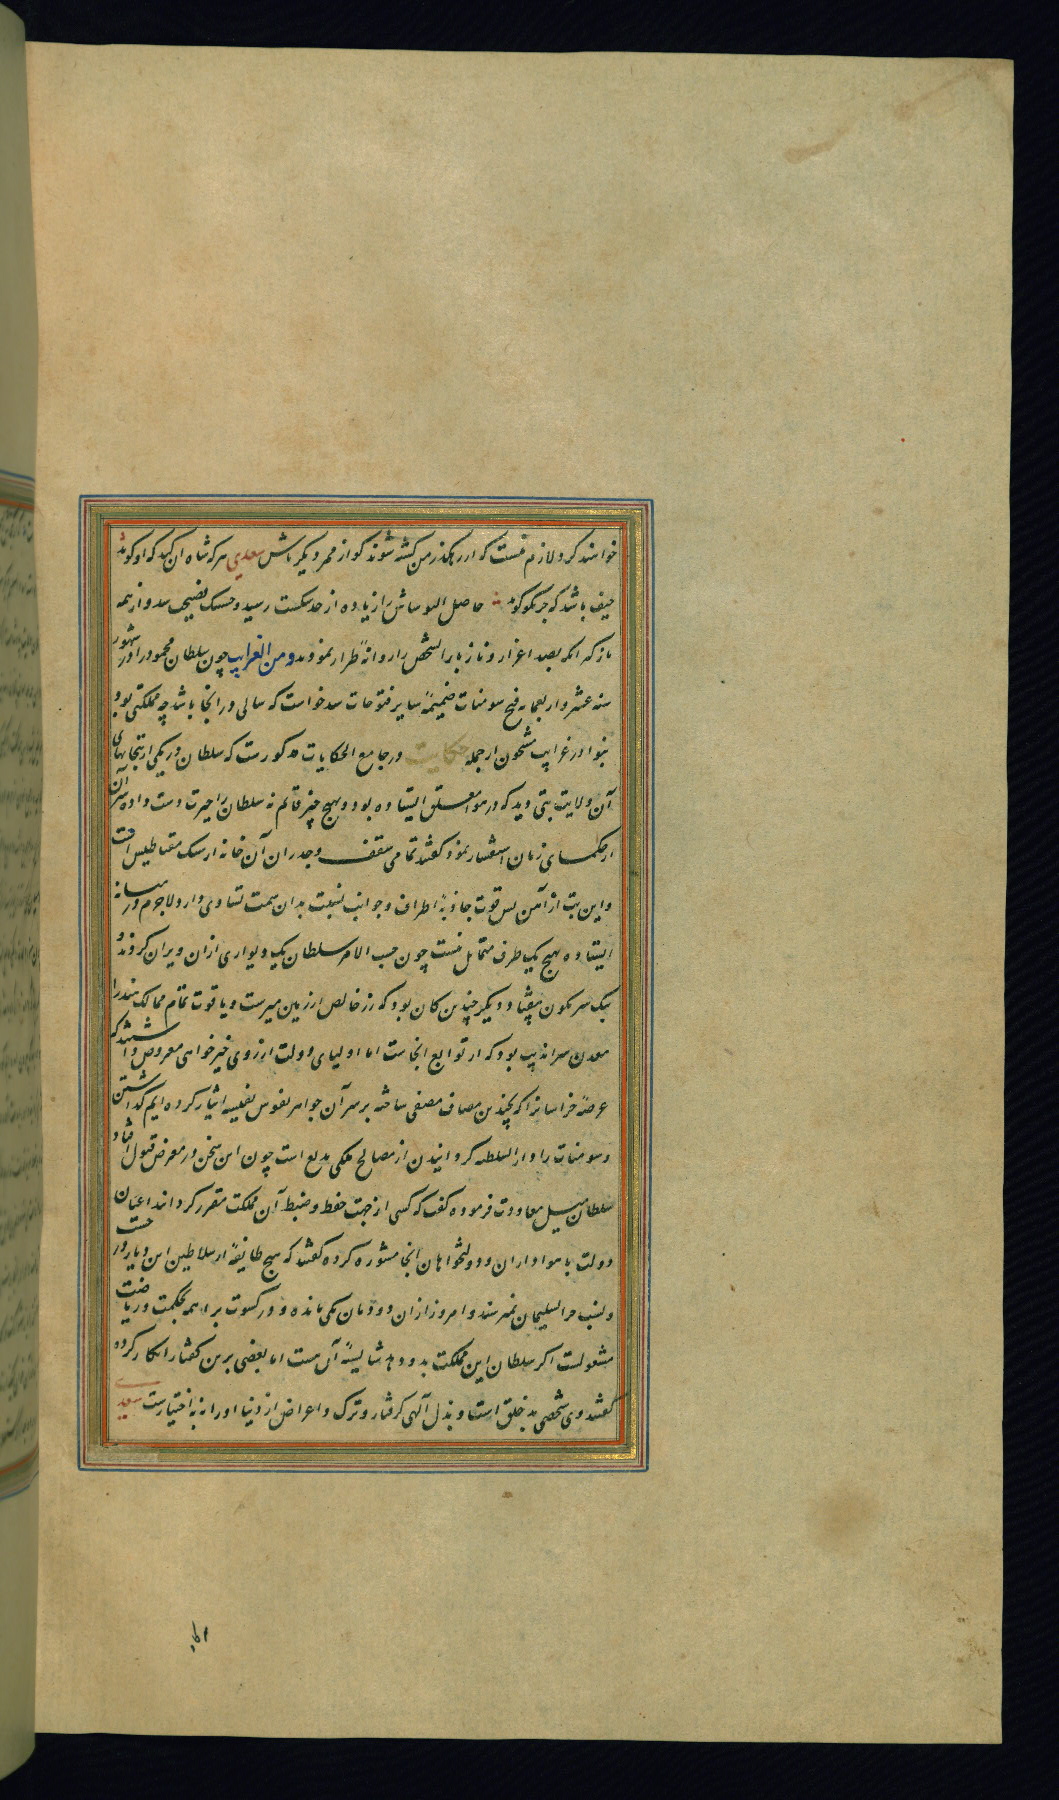 خواهند کرد و لازم نیست که در رهگذر من کشته شوند گو از ممر دیگر باش سعدی هر که شاه آن کند که او گوید
حیف باشد که جز نکو گوید حاصل رسید و از همه
باز بصد اعزاز و ناز را روانهٔ طراز نمودند و من الغرایب چون سلطان محمود را در شهور
سنه عشر و اربعمایه فتح سومنات ضمیمهٔ سایر فتوحات شد خواست که سالی در آنجا باشد چه مملکتی بود
بنوادر غرایب مشحون از جمله حکایت در جامع الحکایات مذکورست که سلطان در یکی از بتخانهای
آن ولایت بتی دید که در هوا معلق ایستاده بود و بهیچ چیز قائم نه سلطان را حیرت دست داده سر آن
از حکمای زمان استفسار نمود گفتند تمامی سقف و جدران آن خانه از سنگ مقناطیس است
و این بت از آهن پس قوت جاذبهٔ اطراف و جوانب نسبت بدان سمت تساوی دارد لاجرم در میانه
ایستاده بهیچ یک طرف متمایل نیست چون حسب الامر سلطان یک دیواری ازان ویران کردند و
بیک سر نگون بیفتاد و دیگر چندین کان بود که زر خالص از زمین میرست و یاقوت تمام ممالک هند را
معدن سراندیب بود که از توابع آنجاست اما اولیای دولت از روی خیرخواهی معروض داشتند که
عرصهٔ خراسان را که بچندین مصاف مصفی ساخته بر سر آن جواهر نفوس نفیسه ایثار کرده ایم گذاشتن
و سومنات را دار السلطنه گردانیدن از مصالح ملکی بدیع است چون این سخن در معرض قبول افتاد
سلطان میل معاودت فرموده گفت که کسی از جهت حفظ و ضبط آن مملکت مقرر گردانند اعیان
دولت با هواداران و دولتخواهان آنجا مشوره کرده گفتند که هیچ طایفهٔ از سلاطین این دیار در حسب
و نسب نمیرسند و امروز ازان دودمان یکی مانده و در کسوت براهمه بحکمت و ریاضت
مشغولست اگر سلطان این مملکت بدو دهد شایستهٔ آن هست اما بعضی برین گفتار انکار کرده
گفتند وی شخصی بد خلق است و ببذل آلهی گرفتار و ترک و اعراض از دنیا او را نه به اختیارست سعدی